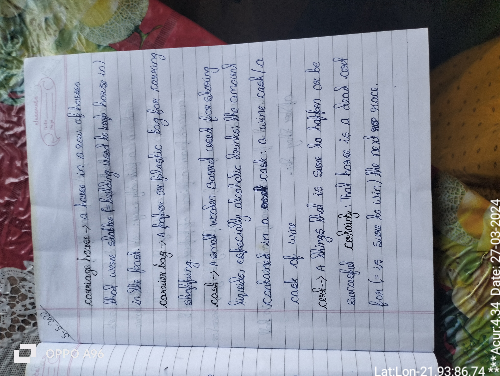 carriage house -> a house in a row of houses
that were similar building used to keep horse in
in the past.
carrier bag -> a paper or plastic bag for carrying
shopping
cask -> A small wooden barrel used for storing
liquids, especially alcoholic drinks, the amount
contained in a cask: a wine cask / a
cask of wine
cert -> A things that is sure to happen or be
successful certainty: that horse is a dead cert
for (is sure to win) the next race.
OPPO A96
Lat:Lon-21.93:86.74
*** Acur:4.34 Date: 27-03-2024